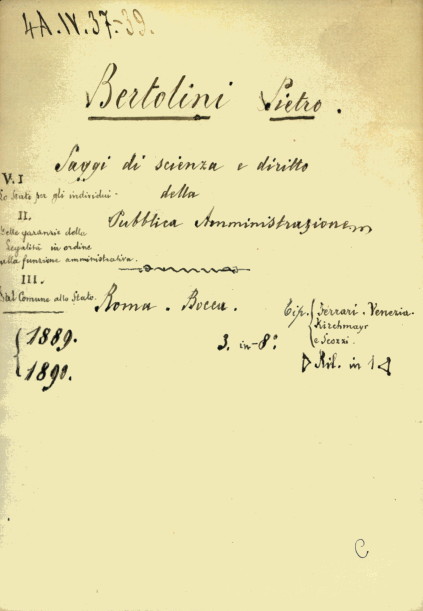 4A.IV.37-39.
Bertolini Pietro.
Saggi di scienza e diritto
della
Pubblica Amministrazione
V. I
Lo Stato per gli individui.
II.
Delle garanzie della
legalità in ordine
alla funzione amministrativa.
III.
Dal Comune allo Stato.
Roma. Bocca.
Tip. Ferrari. Venezia.
Kirchmayr
e Scozzi.
1889.
1890.
3. in-8°.
Ril. in 1
C